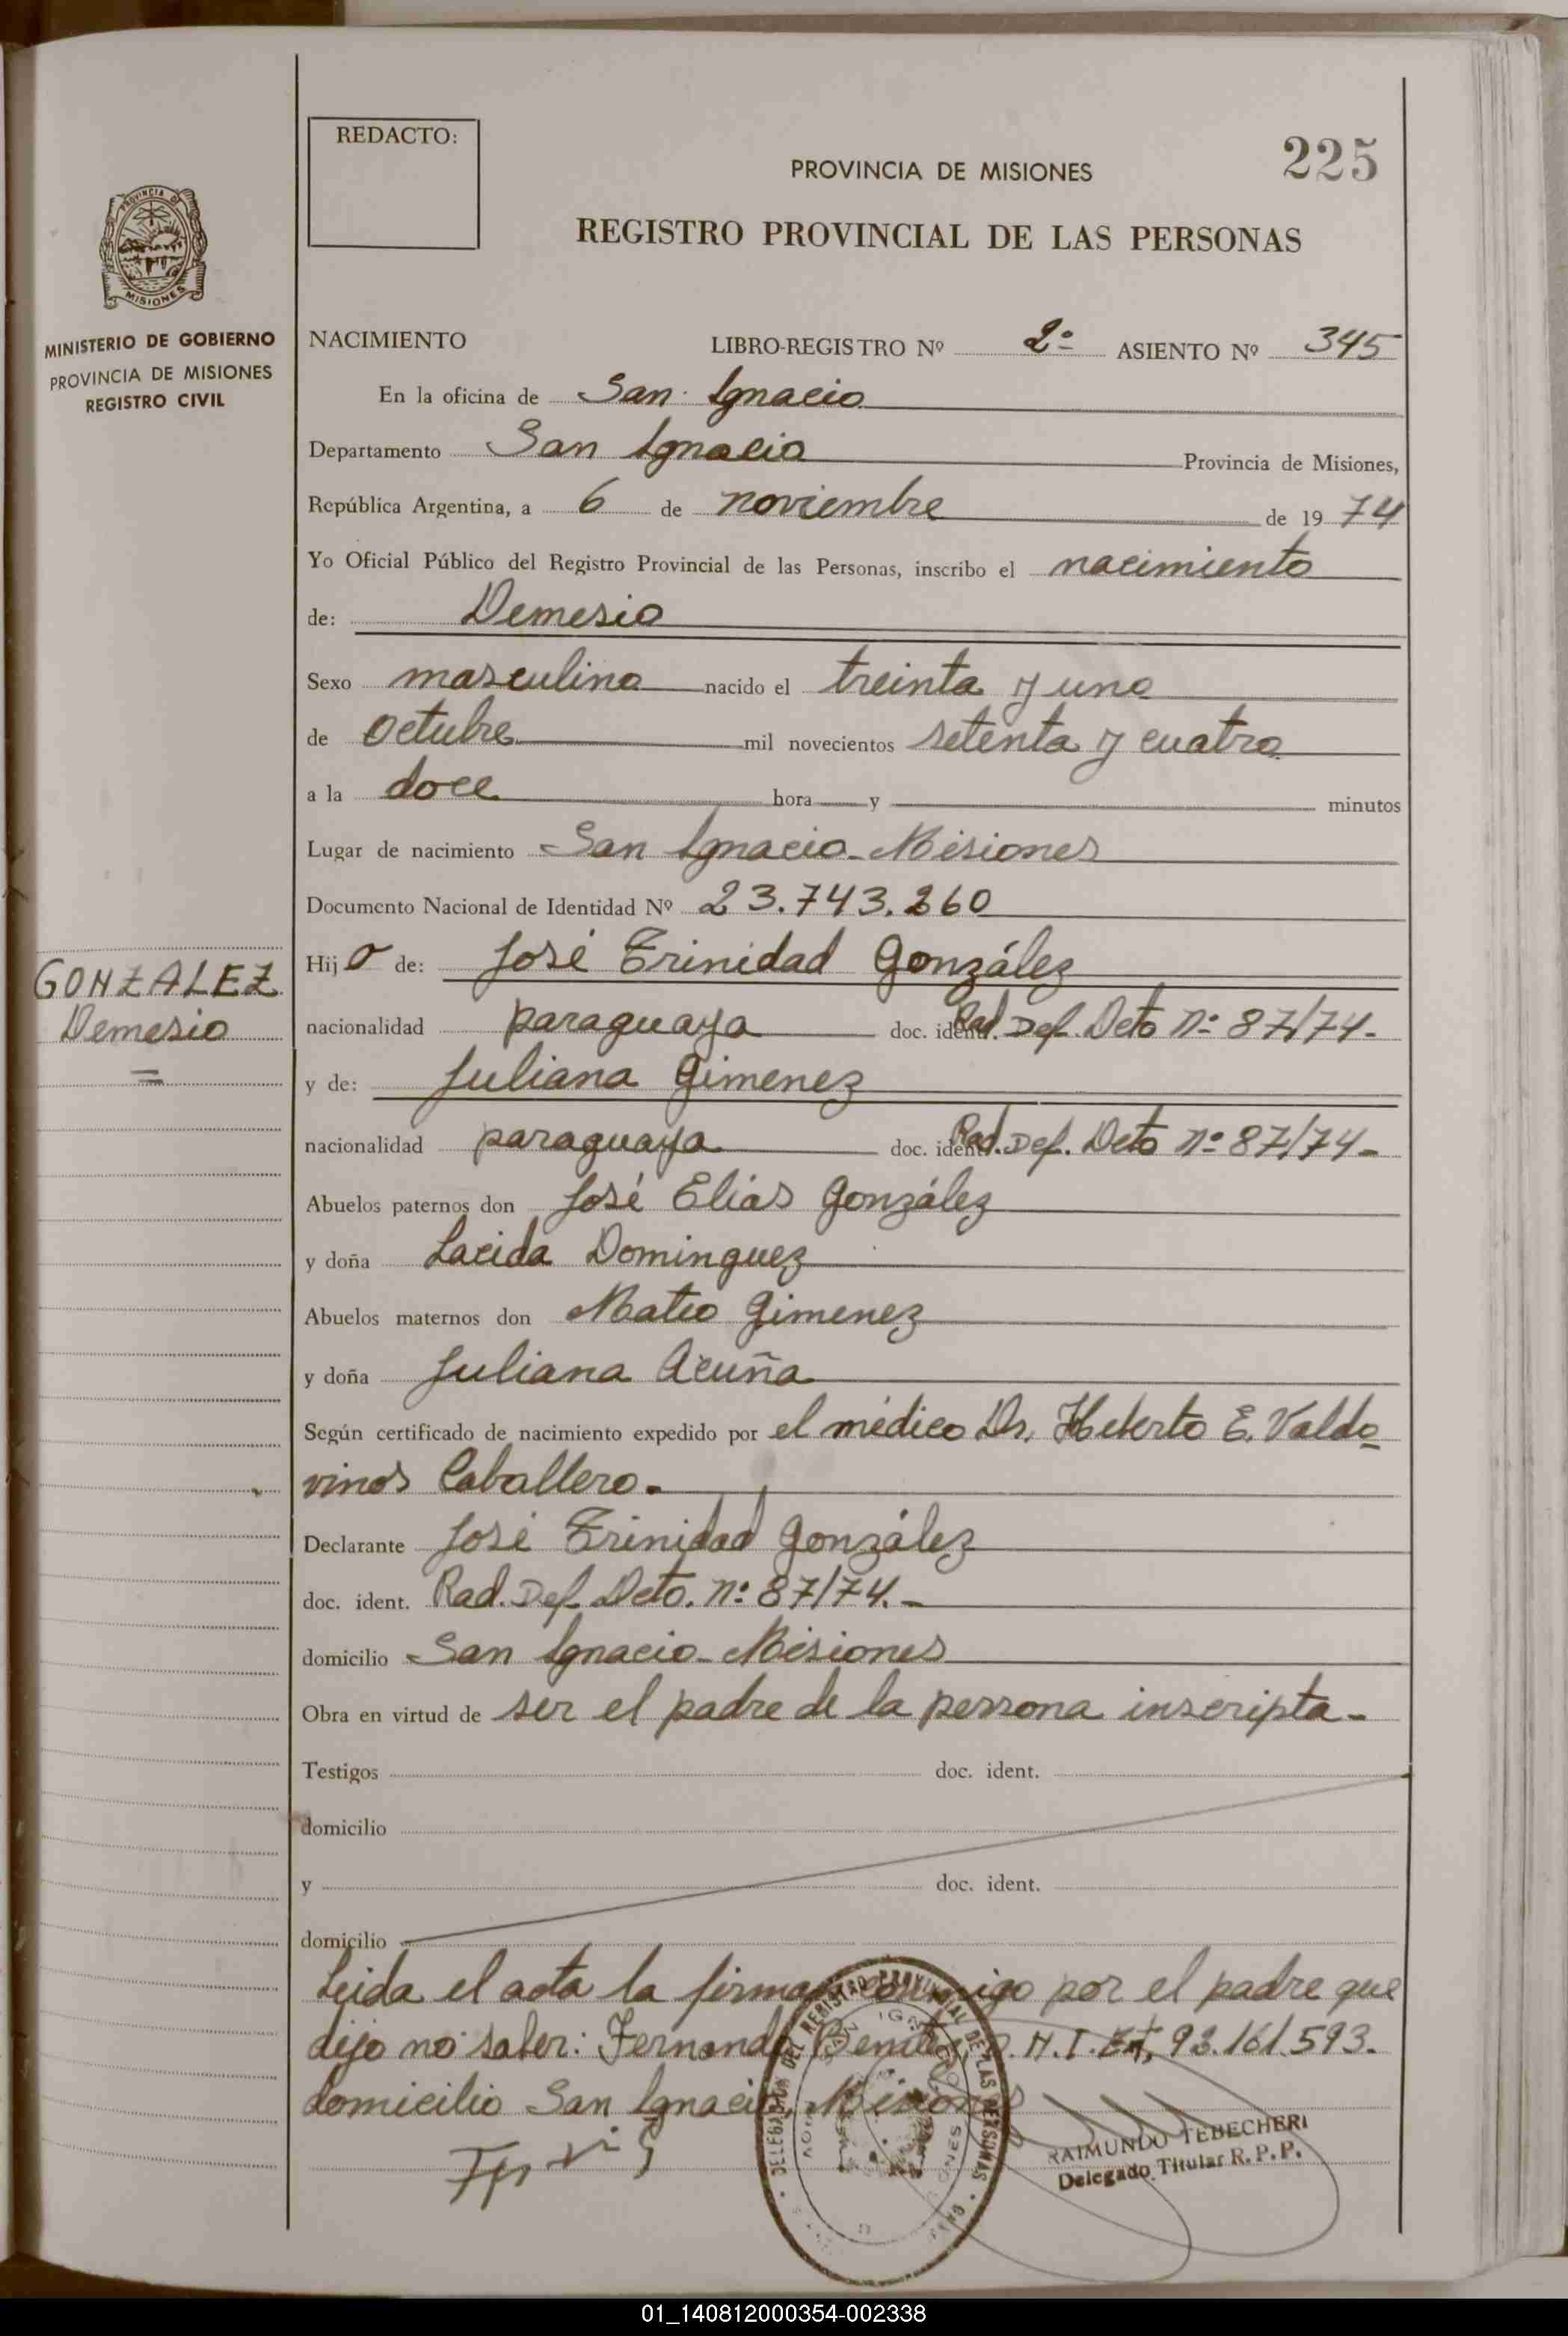 REDACTO:
225
PROVINCIA DE MISIONES
REGISTRO PROVINCIAL DE LAS PERSONAS
PROVINCIA DE
MISIONES
MINISTERIO DE GOBIERNO
PROVINCIA DE MISIONES
REGISTRO CIVIL
NACIMIENTO LIBRO-REGISTRO Nº 2º ASIENTO Nº 345
En la oficina de San Ignacio
Departamento San Ignacio Provincia de Misiones,
República Argentina, a 6 de noviembre de 19 74
Yo Oficial Público del Registro Provincial de las Personas, inscribo el nacimiento
de: Demesio
Sexo masculino nacido el treinta y uno
de octubre mil novecientos setenta y cuatro
a la doce hora y minutos
Lugar de nacimiento San Ignacio - Misiones
Documento Nacional de Identidad Nº 23.743.260
Hij o de: José Trinidad González
GONZALEZ
Demesio
nacionalidad paraguaya doc. ident. Rad. Def. Dcto nº 87/74-
y de: Juliana Gimenez
nacionalidad paraguaya doc. ident. Rad. Def. Dcto nº 87/74-
Abuelos paternos don José Elias González
y doña Lacida Dominguez
Abuelos maternos don Mateo Gimenez
y doña Juliana Acuña
Según certificado de nacimiento expedido por el médico Dr. Heberto E. Valdo
vinos Caballero.-
Declarante José Trinidad González
doc. ident. Rad. Def. Dcto. nº 87/74.-
domicilio San Ignacio - Misiones
Obra en virtud de ser el padre de la persona inscripta-
Testigos doc. ident.
domicilio
y doc. ident.
domicilio
Leida el acta la firma conmigo por el padre que
dijo no saber: Fernando Benitez, D.N.I. Ext, 93.161.593.
domicilio San Ignacio, Misiones
DELEGACION DEL REGISTRO PROVINCIAL DE LAS PERSONAS
SAN IGNACIO
RAIMUNDO TEBECHERI
Delegado Titular R. P. P.
01_140812000354-002338